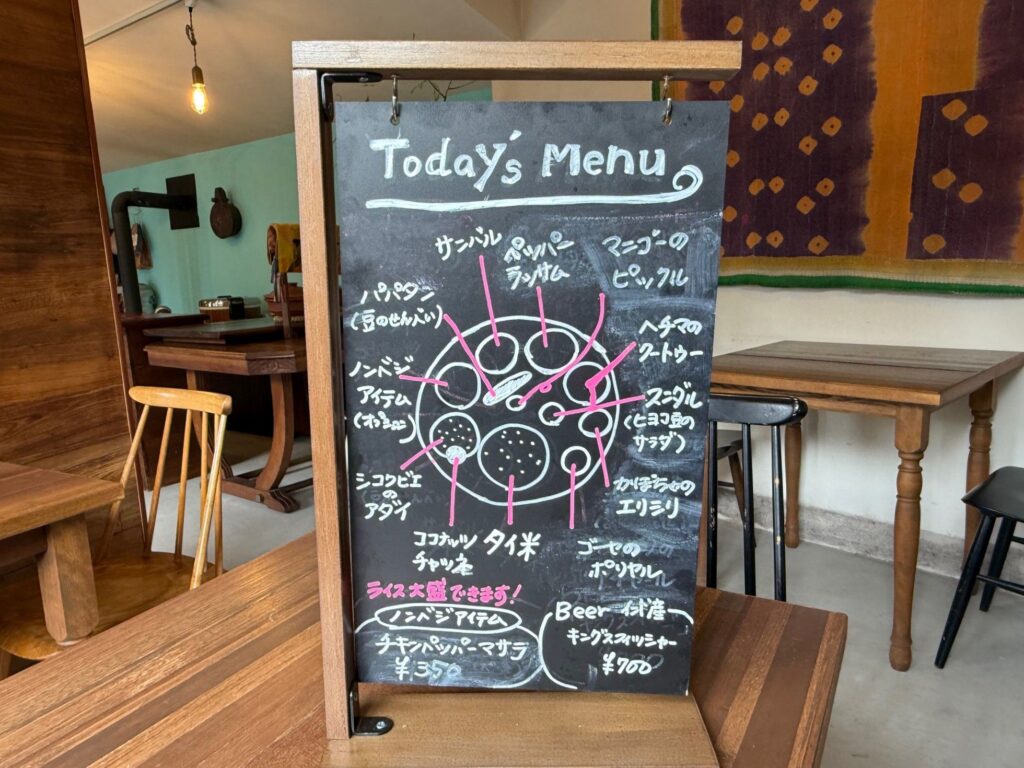 Today's Menu
サンバル
ペッパー
ラッサム
マンゴーの
ピックル
パパダン
(豆のせんべい)
ヘチマの
クートゥー
ノンベジ
アイテム
(オプション)
スンダル
(ヒヨコ豆の
サラダ)
シコクビエ
の
アダイ
かぼちゃの
エリシリ
ココナッツ
チャツネ
タイ米
ゴーヤの
ポリヤル
ライス大盛できます!
ノンベジアイテム
チキンペッパーマサラ
¥350
Beer インド産
キングスフィッシャー
¥700